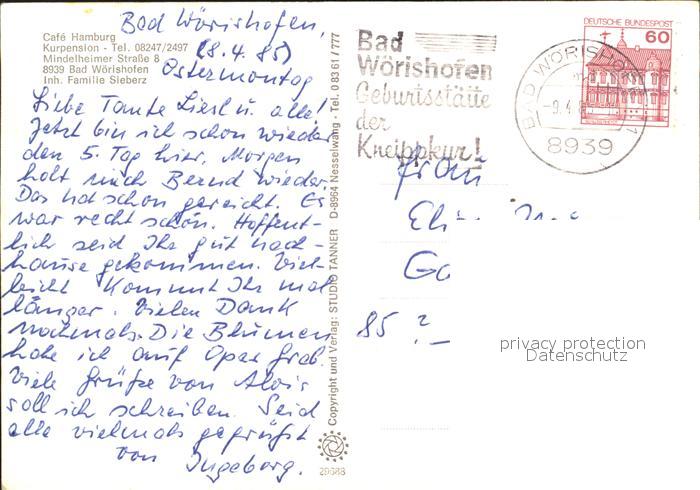 Café Hamburg
Kurpension - Tel. 08247/2497
Mindelheimer Straße 8
8939 Bad Wörishofen
Inh. Familie Sieberz
Bad Wörishofen,
(8.4.85)
Ostermontag
Liebe Tante Liesl u. alle!
Jetzt bin ich schon wieder
den 5. Tag hier. Morgen
holt mich Bernd wieder.
Das hat schon gereicht. Es
war recht schön. Hoffent-
lich seid Ihr gut nach-
hause gekommen. Viel-
leicht kommt Ihr mal
länger. Vielen Dank
nochmals. Die Blumen
habe ich auf Opas Grab.
Viele Grüße von Alois
soll ich schreiben. Seid
alle vielmals gegrüßt
von Ingeborg.
Copyright und Verlag: STUDIO TANNER D-8964 Nesselwang - Tel. 0 83 61 / 777
29688
Bad
Wörishofen
Geburtsstätte
der
Kneippkur!
DEUTSCHE BUNDESPOST
60
BAD WÖRISHOFEN 1
-9.4.85
8939
Frau
85
privacy protection
Datenschutz